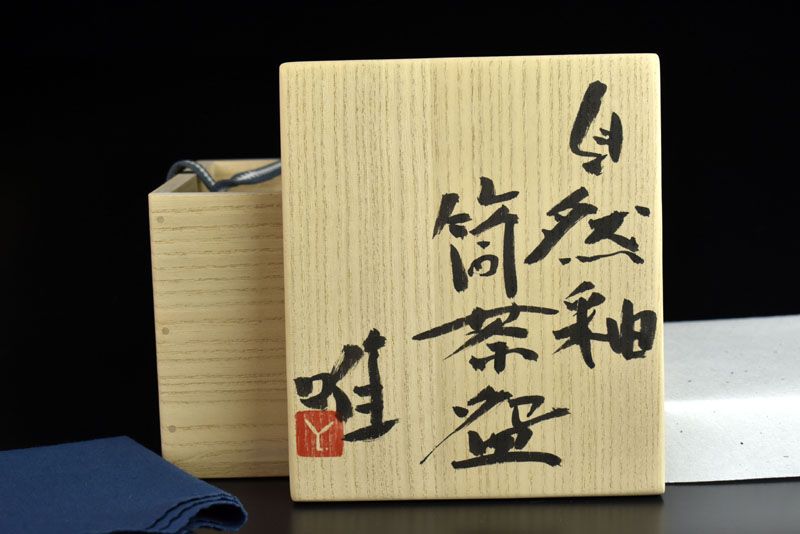 自然釉
筒茶盌
唯